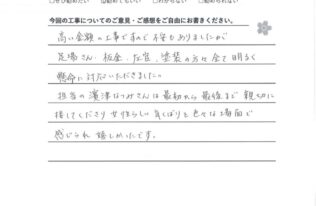 □ぜひ勧めたい □勧めてもいい □わからない □勧められない
今回の工事についてのご意見・ご感想をご自由にお書きください。
高い金額の工事ですので不安もありましたが
足場さん、板金、左官、塗装の方々全て明るく
懸命に対応いただきました。
担当の濱津なつみさんは最初から最後まで親切に
接してくださり女性らしい気くばりと色々な場面で
感じられ嬉しかったです。